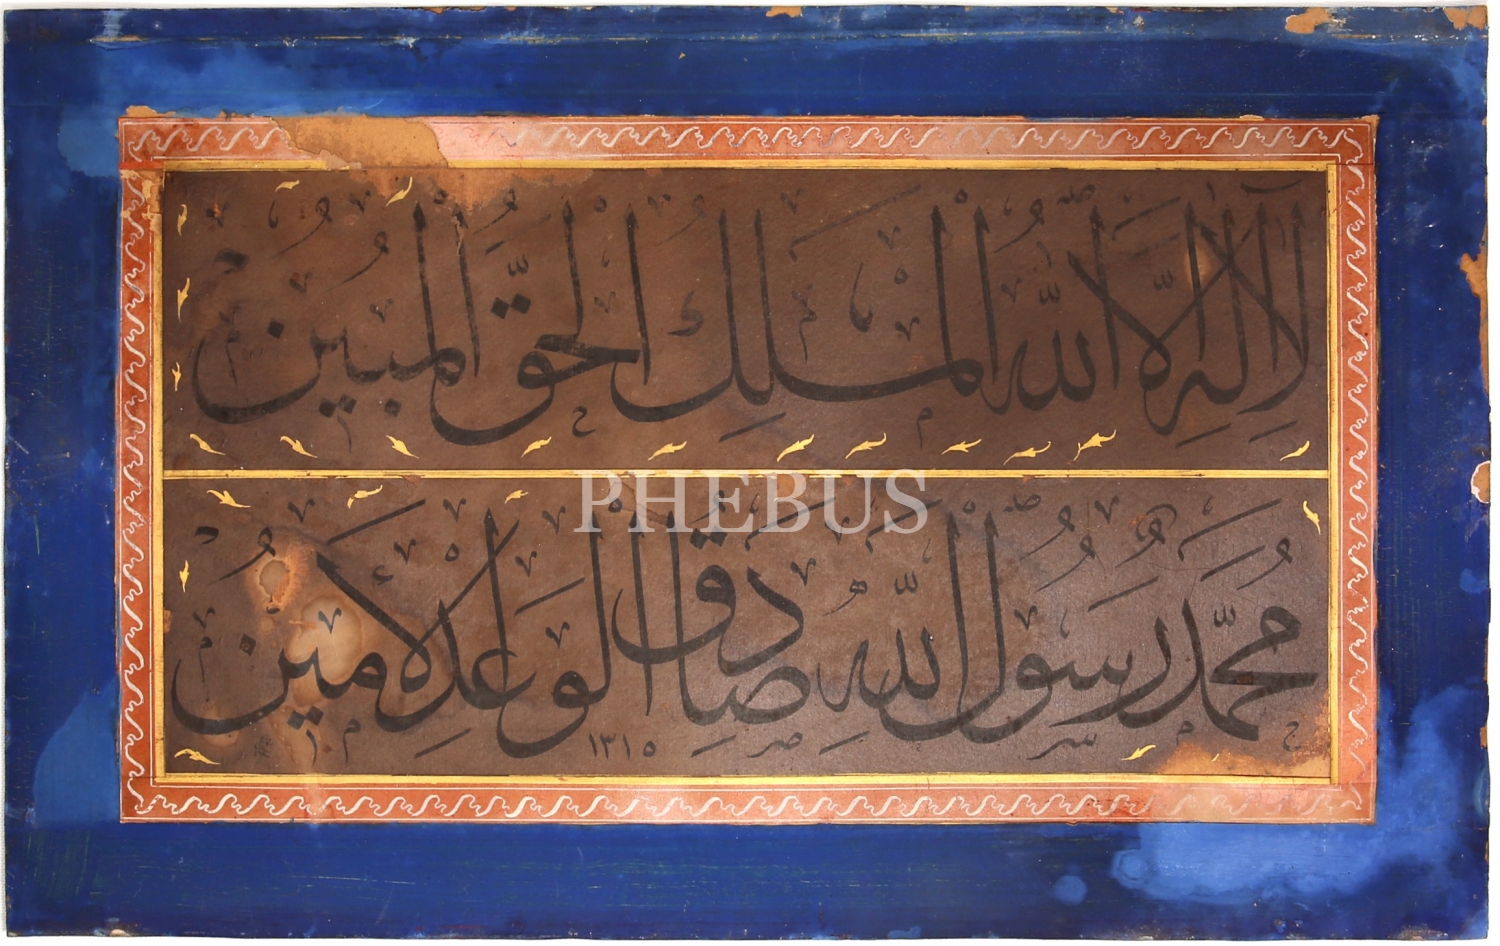 لا إله إلا الله الملك الحق المبين
محمد رسول الله صادق الوعد الأمين
١٣١٥
PHEBUS